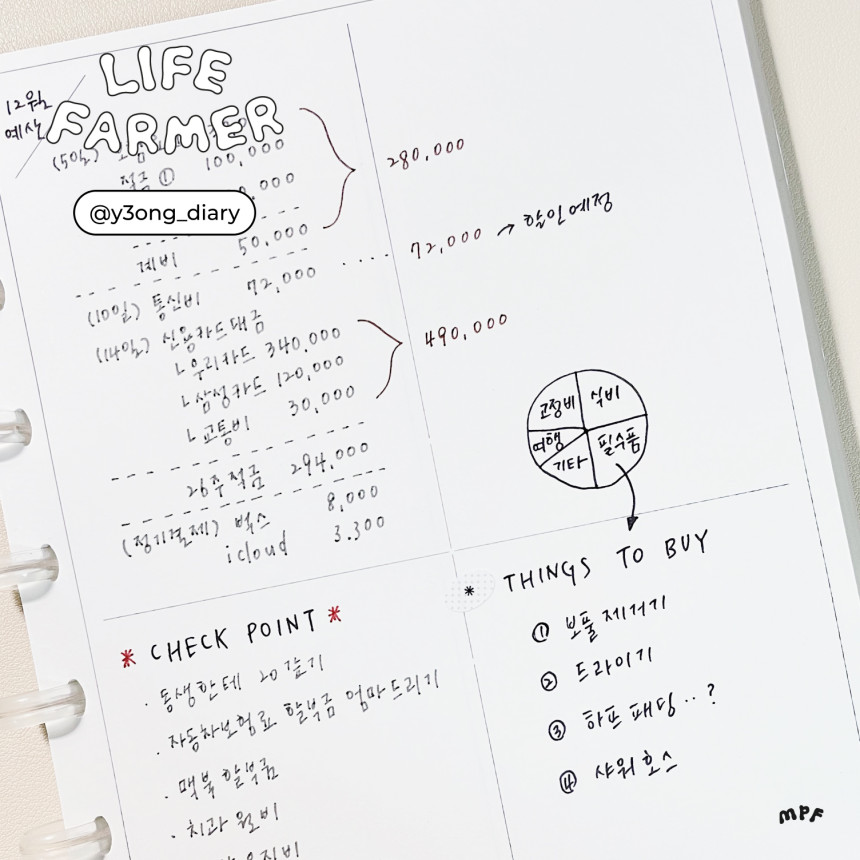 LIFE
FARMER
12월
예산
(5일)
적금 ① 100,000
@y3ong_diary
계비 50,000
280,000
(10일) 통신비 72,000
72,000 → 할인예정
(14일) 신용카드대금
ㄴ우리카드 340,000
ㄴ삼성카드 120,000
ㄴ교통비 30,000
490,000
26주적금 294,000
(정기결제) 벅스 8,000
icloud 3.300
고정비
식비
여행
기타
필수품
* CHECK POINT *
· 동생한테 20 갚기
· 자동차보험료 할부금 엄마드리기
· 맥북 할부금
· 치과 월비
* THINGS TO BUY
① 보풀제거기
② 드라이기
③ 하프 패딩..?
④ 샤워호스
MPF